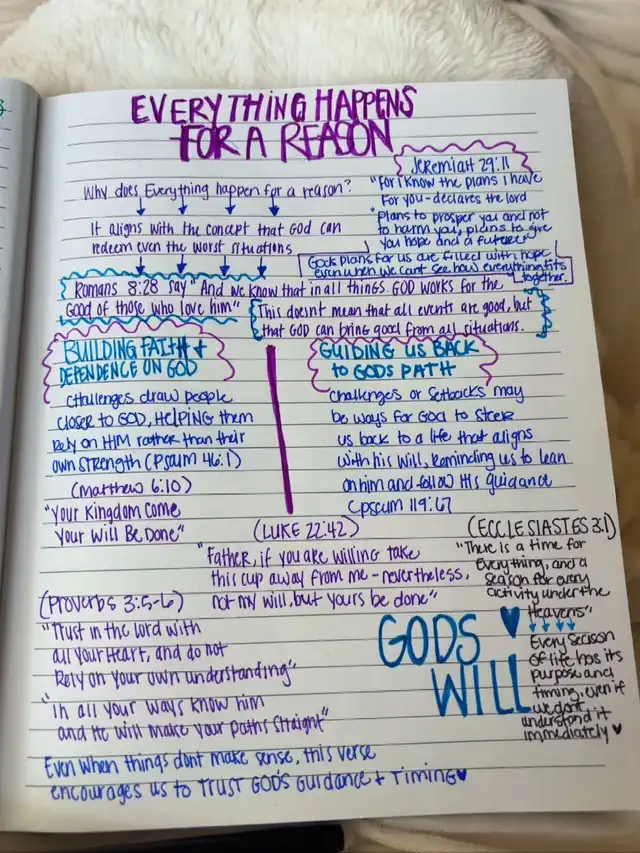 EVERYTHING HAPPENS
FOR A REASON
Why does Everything happen for a reason?
It aligns with the concept that GOD can
redeem even the worst situations
Jeremiah 29:11
"For I know the plans i have
For you - declares the lord
"Plans to prosper you and not
to harm you, plans to give
You hope and a future"
Gods plans for us are filled with hope
even when we cant see how everything fits
together.
Romans 8:28 say "And we know that in all things. GOD works for the
Good of those who love him"
This doesnt mean that all events are good, but
that GOD can bring good from all situations.
BUILDING FAITH +
DEPENDENCE ON GOD
challenges draw people
closer to GOD, HELPING them
rely on HIM rather than their
own strength (Pscum 46:1)
(Matthew 6:10)
"Your Kingdom come
Your Will Be Done"
GUIDING US BACK
to GODS PATH
Challenges or setbacks may
be ways for God to steer
us back to a life that aligns
with his will, Reminding us to lean
on him and follow His guidance
(pscum 119:67
(LUKE 22:42)
"Father, if you are willing take
this cup away from me - nevertheless,
not my will, but yours be done"
(ECCLESIASTES 3:1)
"There is a time for
Everything, and a
season for every
activity under the
Heavens"
Every season
of life has its
purpose and
timing, even if
we dont
understand it
immediately ♥
(Proverbs 3:5-6)
"Trust in the lord with
all your Heart, and do not
Rely on your own understanding"
"In all your ways know him
and He will make your paths straight"
GODS ♥
WILL
Even when things dont make sense, this verse
encourages us to TRUST GOD'S Guidance + Timing ♥